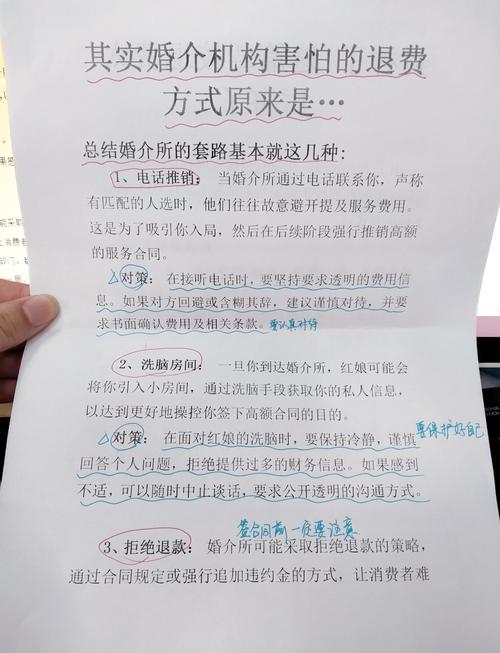 其实婚介机构害怕的退费
方式原来是…
总结婚介所的套路基本就这几种:
1、电话推销: 当婚介所通过电话联系你，声称
有匹配的人选时，他们往往故意避开提及服务费用。
这是为了吸引你入局，然后在后续阶段强行推销高额
的服务合同。
对策: 在接听电话时，要坚持要求透明的费用信
息。如果对方回避或含糊其辞，建议谨慎对待，并要
求书面确认费用及相关条款。要认真对待
2、洗脑房间: 一旦你到达婚介所，红娘可能会
将你引入小房间，通过洗脑手段获取你的私人信息，
以达到更好地操控你签下高额合同的目的。
要保护好自己
对策: 在面对红娘的洗脑时，要保持冷静，谨慎
回答个人问题，拒绝提供过多的财务信息。如果感到
不适，可以随时中止谈话，要求公开透明的沟通方式。
签合同前一定要注意
3、拒绝退款: 婚介所可能采取拒绝退款的策略，
通过合同规定或强行追加违约金的方式，让消费者难